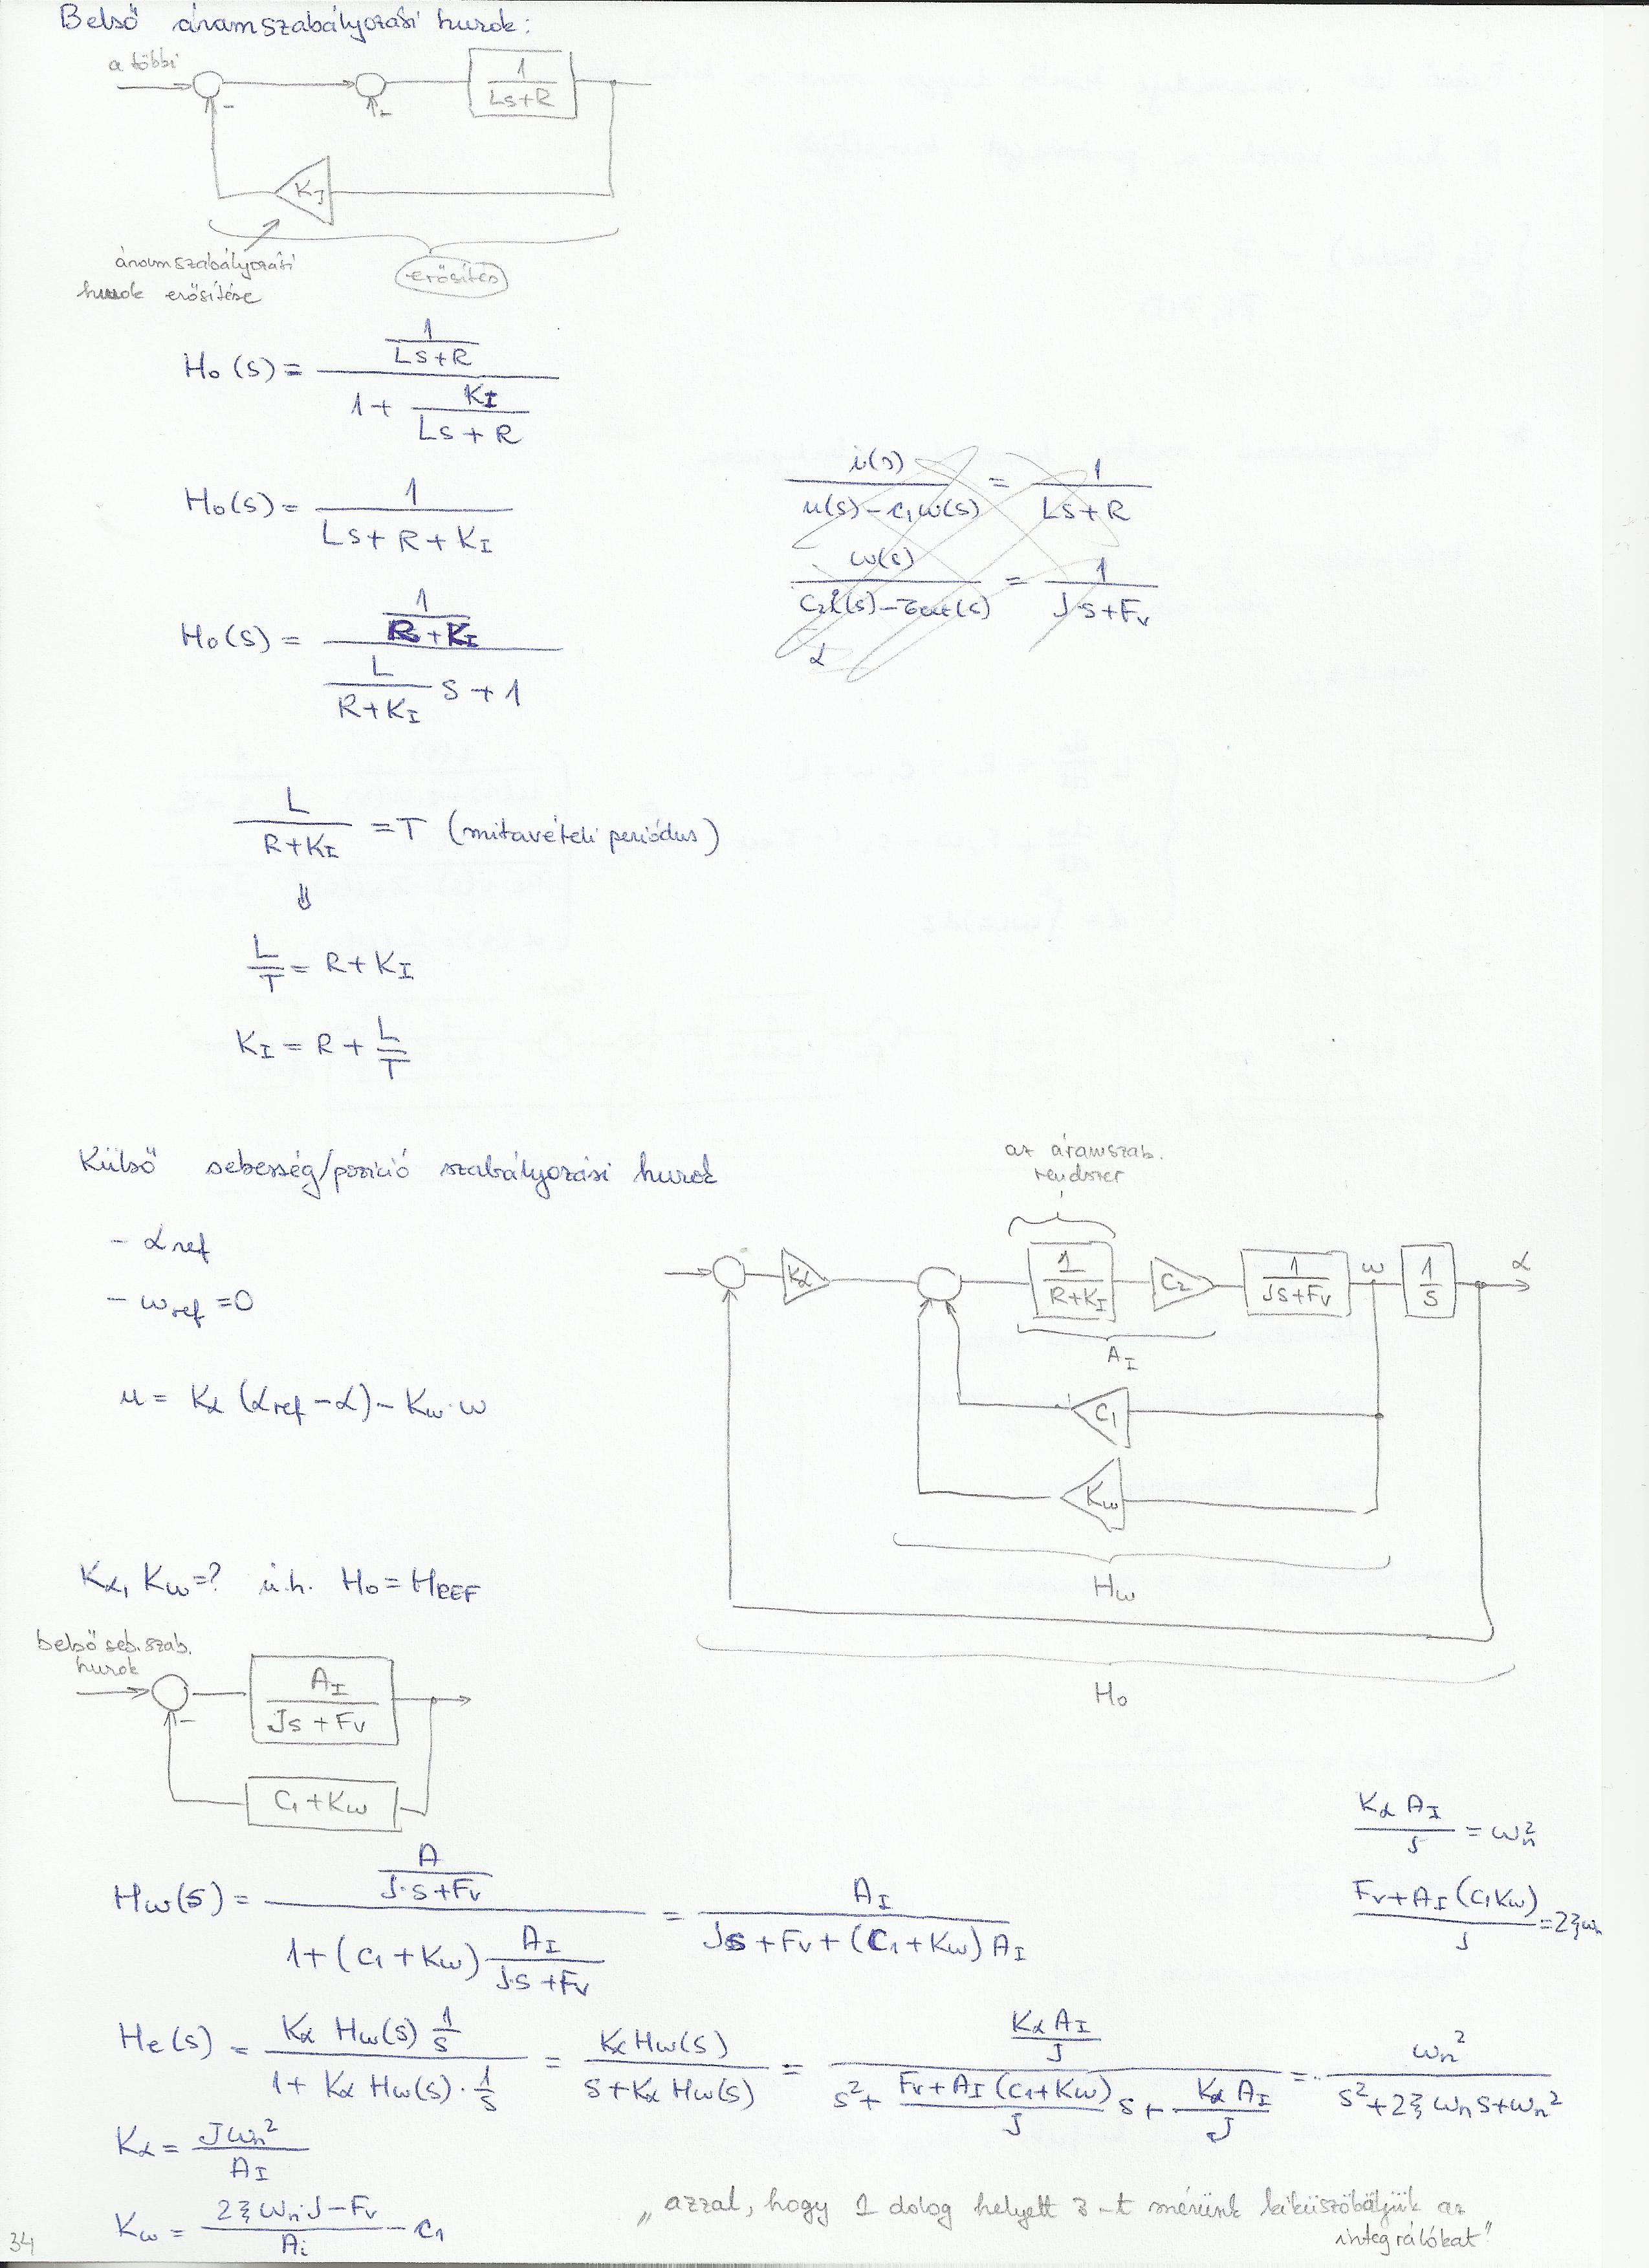 Belső áramszabályozási hurok:
a többi
1
Ls+R
-
-
K_J
áramszabályozási
hurok erősítése
erősítés
H₀(s) = (1/(Ls+R)) / (1 + K_I/(Ls+R))
H₀(s) = 1/(Ls+R+K_I)
H₀(s) = (1/(R+K_I)) / (L/(R+K_I) s + 1)
i(s)/(u(s)-c₁ω(s)) = 1/(Ls+R)
ω(s)/(c₂i(s)-τ_ext(s)) = 1/(J·s+F_v)
α
L/(R+K_I) = T (mitavételi periódus)
⇓
L/T = R+K_I
K_I = R + L/T
Külső sebesség/pozíció szabályozási hurok
- α_ref
- ω_ref = 0
u = K_α (α_ref - α) - K_ω·ω
az áramszab.
rendszer
K_α
1/(R+K_I)
C₂
1/(Js+F_v)
ω
1/s
α
A_I
C₁
K_ω
H_ω
H₀
K_α, K_ω = ? ú.h. H₀ = H_REF
belső seb.szab.
hurok
-
A_I/(Js+F_v)
C₁+K_ω
K_α A_I / J = ω_n²
(F_v+A_I(c₁K_ω))/J = 2ξω_n
H_ω(s) = (A/(J·s+F_v)) / (1+(c₁+K_ω) A_I/(J·s+F_v)) = A_I/(Js+F_v+(C₁+K_ω)A_I)
H_e(s) = (K_α H_ω(s) 1/s) / (1+K_α H_ω(s)·1/s) = K_α H_ω(s)/(s+K_α H_ω(s)) = (K_α A_I/J) / (s² + (F_v+A_I(c₁+K_ω))/J s + K_α A_I/J) = ω_n²/(s²+2ξω_n s+ω_n²)
K_α = Jω_n²/A_I
K_ω = (2ξω_n·J-F_v)/A_i - c₁
„azzal, hogy 1 dolog helyett 3-t mérünk kiküszöböljük az
integrálókat"
34